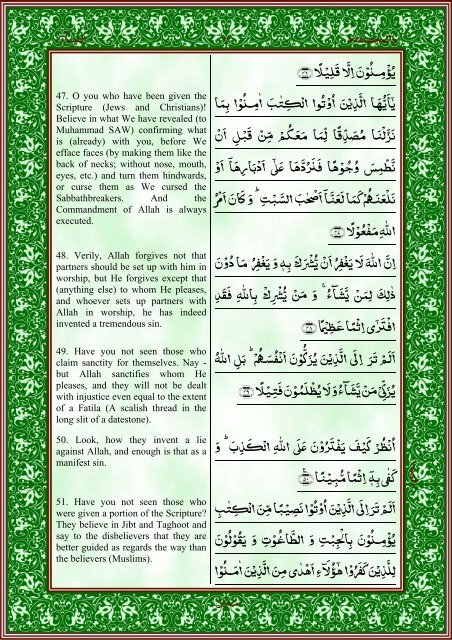 يُؤْمِنُوْنَ اِلَّا قَلِيْلًا ﴿۴۶﴾
47. O you who have been given the
Scripture (Jews and Christians)!
Believe in what We have revealed (to
Muhammad SAW) confirming what
is (already) with you, before We
efface faces (by making them like the
back of necks; without nose, mouth,
eyes, etc.) and turn them hindwards,
or curse them as We cursed the
Sabbathbreakers. And the
Commandment of Allah is always
executed.
يٰٓاَيُّهَا الَّذِيْنَ اُوْتُوا الْكِتٰبَ اٰمِنُوْا بِمَا
نَزَّلْنَا مُصَدِّقًا لِّمَا مَعَكُمْ مِّنْ قَبْلِ اَنْ
نَّطْمِسَ وُجُوْهًا فَنَرُدَّهَا عَلٰٓى اَدْبَارِهَاۤ اَوْ
نَلْعَنَهُمْ كَمَا لَعَنَّاۤ اَصْحٰبَ السَّبْتِ ؕ وَ كَانَ اَمْرُ
اللّٰهِ مَفْعُوْلًا ﴿۴۷﴾
48. Verily, Allah forgives not that
partners should be set up with him in
worship, but He forgives except that
(anything else) to whom He pleases,
and whoever sets up partners with
Allah in worship, he has indeed
invented a tremendous sin.
اِنَّ اللّٰهَ لَا يَغْفِرُ اَنْ يُّشْرَكَ بِهٖ وَ يَغْفِرُ مَا دُوْنَ
ذٰلِكَ لِمَنْ يَّشَآءُ ۚ وَ مَنْ يُّشْرِكْ بِاللّٰهِ فَقَدِ
افْتَرٰۤى اِثْمًا عَظِيْمًا ﴿۴۸﴾
49. Have you not seen those who
claim sanctity for themselves. Nay -
but Allah sanctifies whom He
pleases, and they will not be dealt
with injustice even equal to the extent
of a Fatila (A scalish thread in the
long slit of a datestone).
اَلَمْ تَرَ اِلَى الَّذِيْنَ يُزَكُّوْنَ اَنْفُسَهُمْ ؕ بَلِ اللّٰهُ
يُزَكِّيْ مَنْ يَّشَآءُ وَ لَا يُظْلَمُوْنَ فَتِيْلًا ﴿۴۹﴾
50. Look, how they invent a lie
against Allah, and enough is that as a
manifest sin.
اُنْظُرْ كَيْفَ يَفْتَرُوْنَ عَلَى اللّٰهِ الْكَذِبَ ؕ وَ
كَفٰى بِهٖۤ اِثْمًا مُّبِيْنًا ﴿۵۰﴾
51. Have you not seen those who
were given a portion of the Scripture?
They believe in Jibt and Taghoot and
say to the disbelievers that they are
better guided as regards the way than
the believers (Muslims).
اَلَمْ تَرَ اِلَى الَّذِيْنَ اُوْتُوْا نَصِيْبًا مِّنَ الْكِتٰبِ
يُؤْمِنُوْنَ بِالْجِبْتِ وَ الطَّاغُوْتِ وَ يَقُوْلُوْنَ
لِلَّذِيْنَ كَفَرُوْا هٰۤؤُلَآءِ اَهْدٰى مِنَ الَّذِيْنَ اٰمَنُوْا